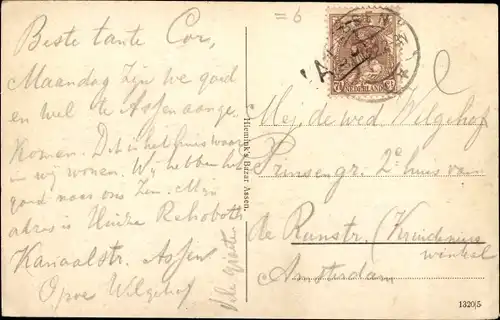 = 6
Beste tante Cor,
Maandag zijn we goed
en wel te Assen aange
komen. Dit is het huis waar
in wij wonen. Wij hebben het
goed naar ons zin. Mijn
adres is Huize Rehoboth
Kanaalstr. Assen
Opoe Wilgehof
Vele groeten
Hiemink's Bazar, Assen.
ASSEN
NEDERLAND
7½
Mej. de wed Wilgehof
Prinsengr. 2e huis van
de Runstr. (Kruideniers
winkel
Amsterdam
1320|5